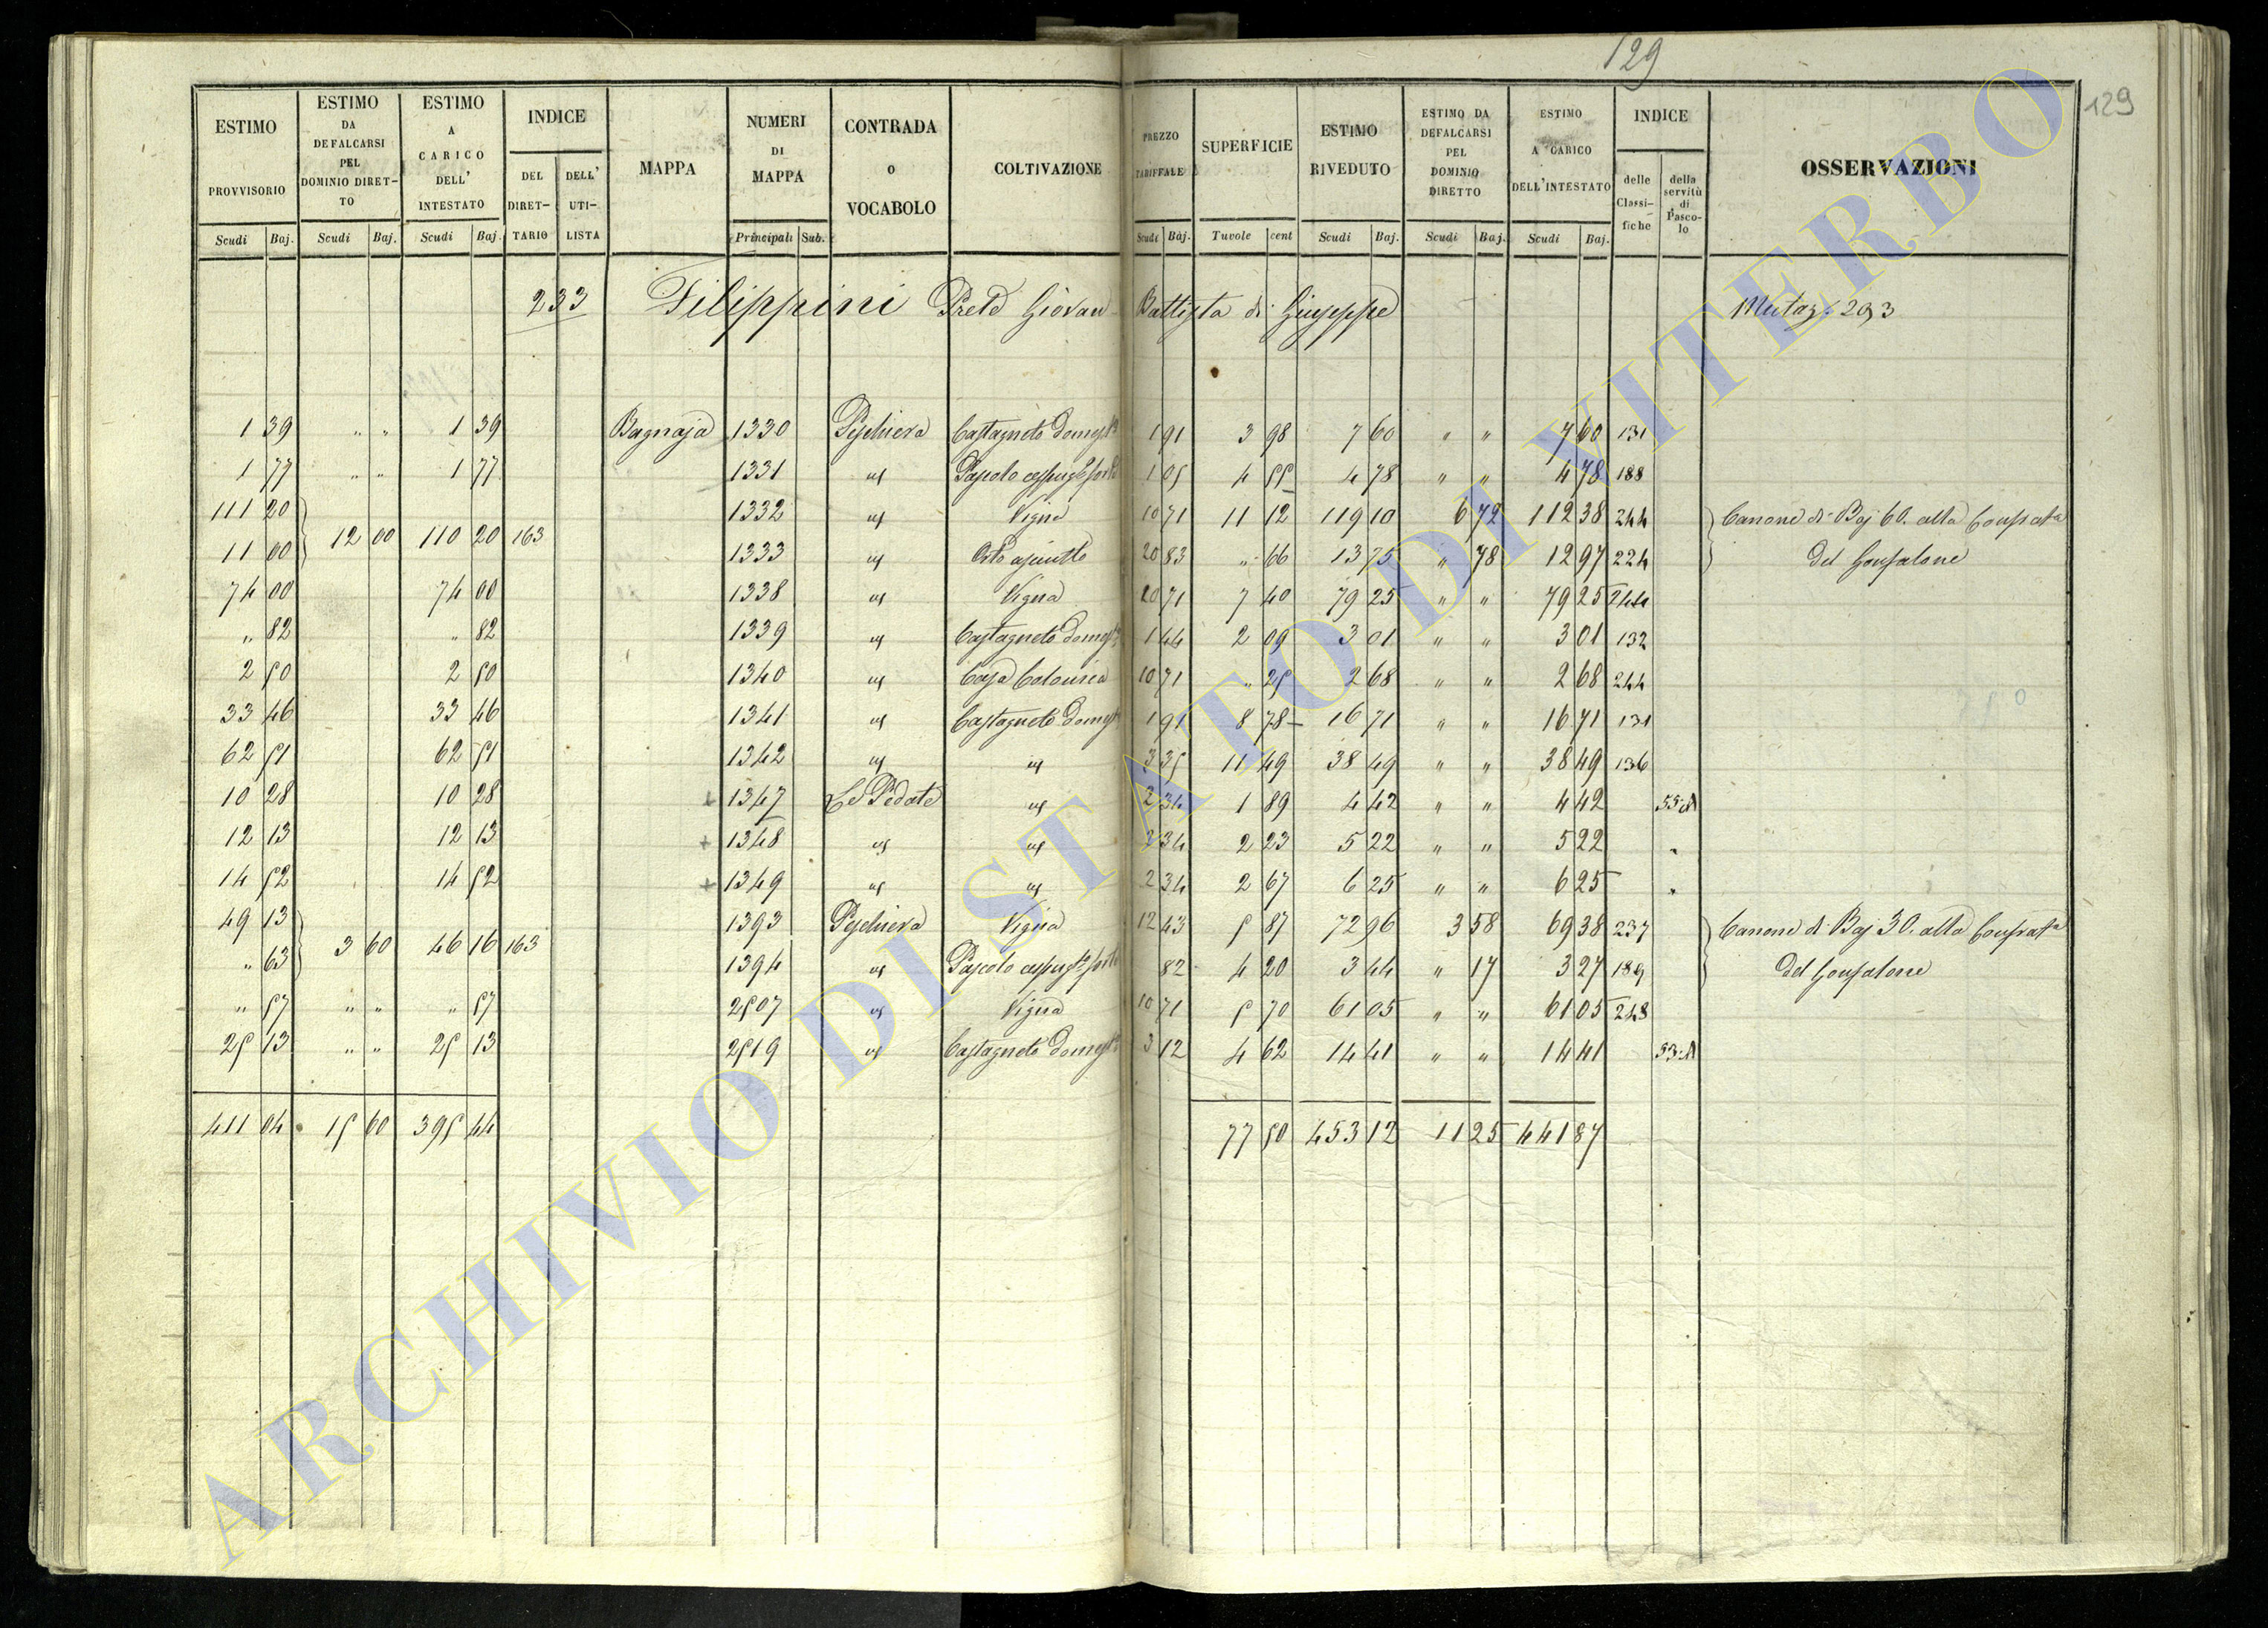 129
129
ESTIMO PROVVISORIO
ESTIMO DA DEFALCARSI PEL DOMINIO DIRET-TO
ESTIMO A CARICO DELL' INTESTATO
INDICE
DEL DIRET-TARIO
DELL' UTI-LISTA
MAPPA
NUMERI DI MAPPA
CONTRADA O VOCABOLO
COLTIVAZIONE
PREZZO TARIFFALE
SUPERFICIE
ESTIMO RIVEDUTO
ESTIMO DA DEFALCARSI PEL DOMINIO DIRETTO
ESTIMO A CARICO DELL'INTESTATO
INDICE
delle Classi-fiche
della servitù di Pasco-lo
OSSERVAZIONI
Scudi Baj. Scudi Baj. Scudi Baj. Principali Sub. Scudi Baj. Tavole cent Scudi Baj. Scudi Baj. Scudi Baj.
233 Filippini Prete Giovan Battista di Giuseppe Mutaz. 293
1 39 " " 1 39 Bagnaja 1330 Peschiera Castagneto Domest° 1 91 3 98 7 60 " " 7 60 131
1 77 " " 1 77 1331 us Pascolo 1 05 4 55 4 78 " " 4 78 188
111 20 1332 us Vigna 10 71 11 12 119 10 6 72 112 38 244 Canone di Baj 60. alla Confrata
12 00 110 20 163
11 00 1333 us Orto asciutto 20 83 " 66 13 75 " 78 12 97 224 del Gonfalone
74 00 74 00 1338 us Vigna 10 71 7 40 79 25 " " 79 25 244
" 82 " 82 1339 us Castagneto Domest° 1 44 2 09 3 01 " " 3 01 132
2 50 2 50 1340 us Casa Colonica 10 71 " 25 2 68 " " 2 68 244
33 46 33 46 1341 us Castagneto Domest° 1 91 8 78 16 71 " " 16 71 131
62 51 62 51 1342 us us 3 35 11 49 38 49 " " 38 49 136
10 28 10 28 + 1347 Le Pedate us 2 34 1 89 4 42 " " 4 42 55.A
12 13 12 13 + 1348 us us 2 34 2 23 5 22 " " 5 22 "
14 52 14 52 + 1349 us us 2 34 2 67 6 25 " " 6 25 "
49 13 1393 Peschiera Vigna 12 43 5 87 72 96 3 58 69 38 237 Canone di Baj 30. alla Confrata
3 60 46 16 163
" 63 1394 us Pascolo 82 4 20 3 44 " 17 3 27 189 del Gonfalone
" 57 " " " 57 2507 us Vigna 10 71 5 70 61 05 " " 61 05 248
25 13 " " 25 13 2519 us Castagneto Domest° 3 12 4 62 14 41 " " 14 41 53.A
411 04 15 60 395 44 77 50 453 12 11 25 441 87
ARCHIVIO DI STATO DI VITERBO